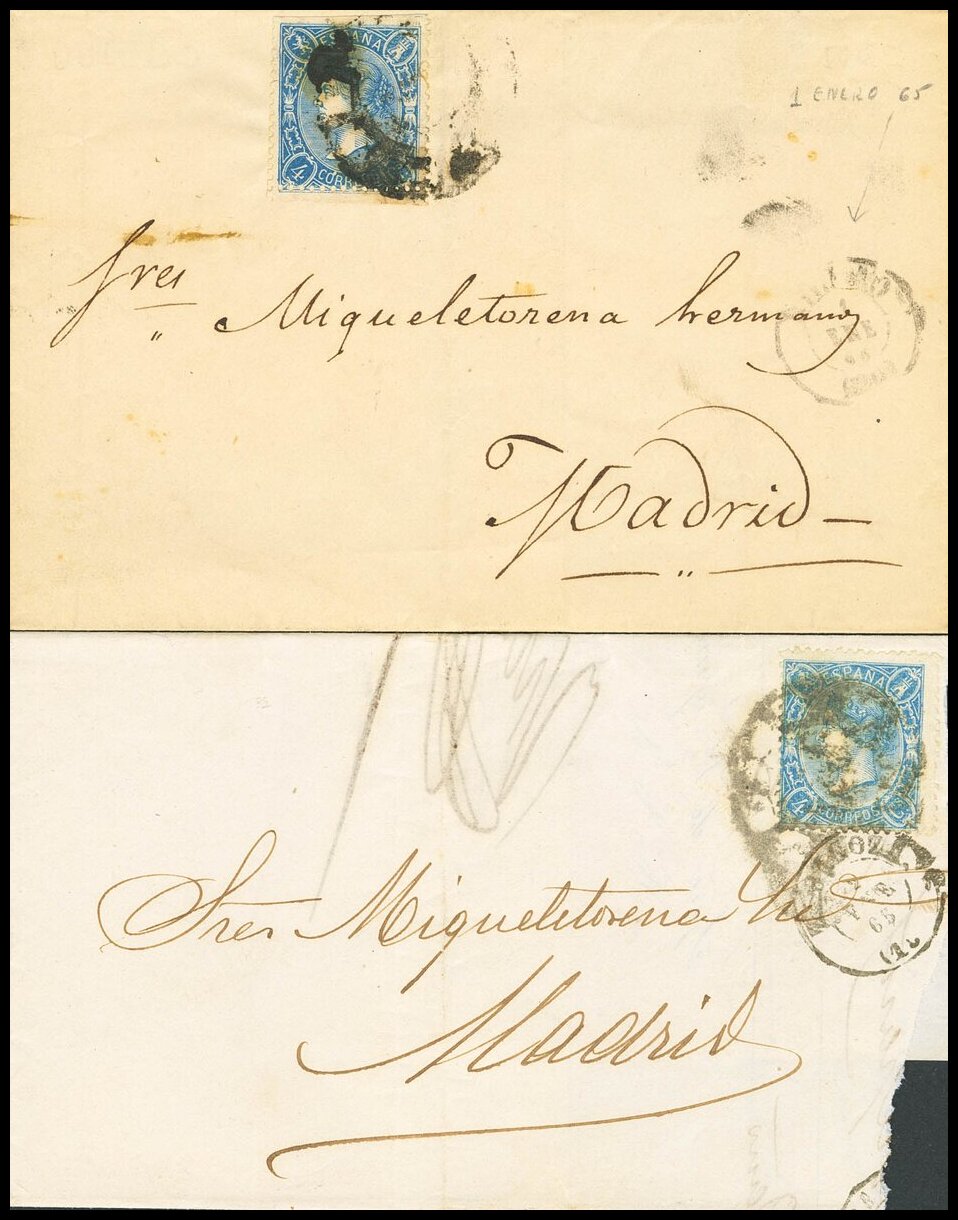 ESPAÑA
4
CORREOS
1 ENERO 65
Sres Miqueletorena hermanos
Madrid
ENE
ESPAÑA
4
CORREOS
Sres Miqueletorena
Madrid
65